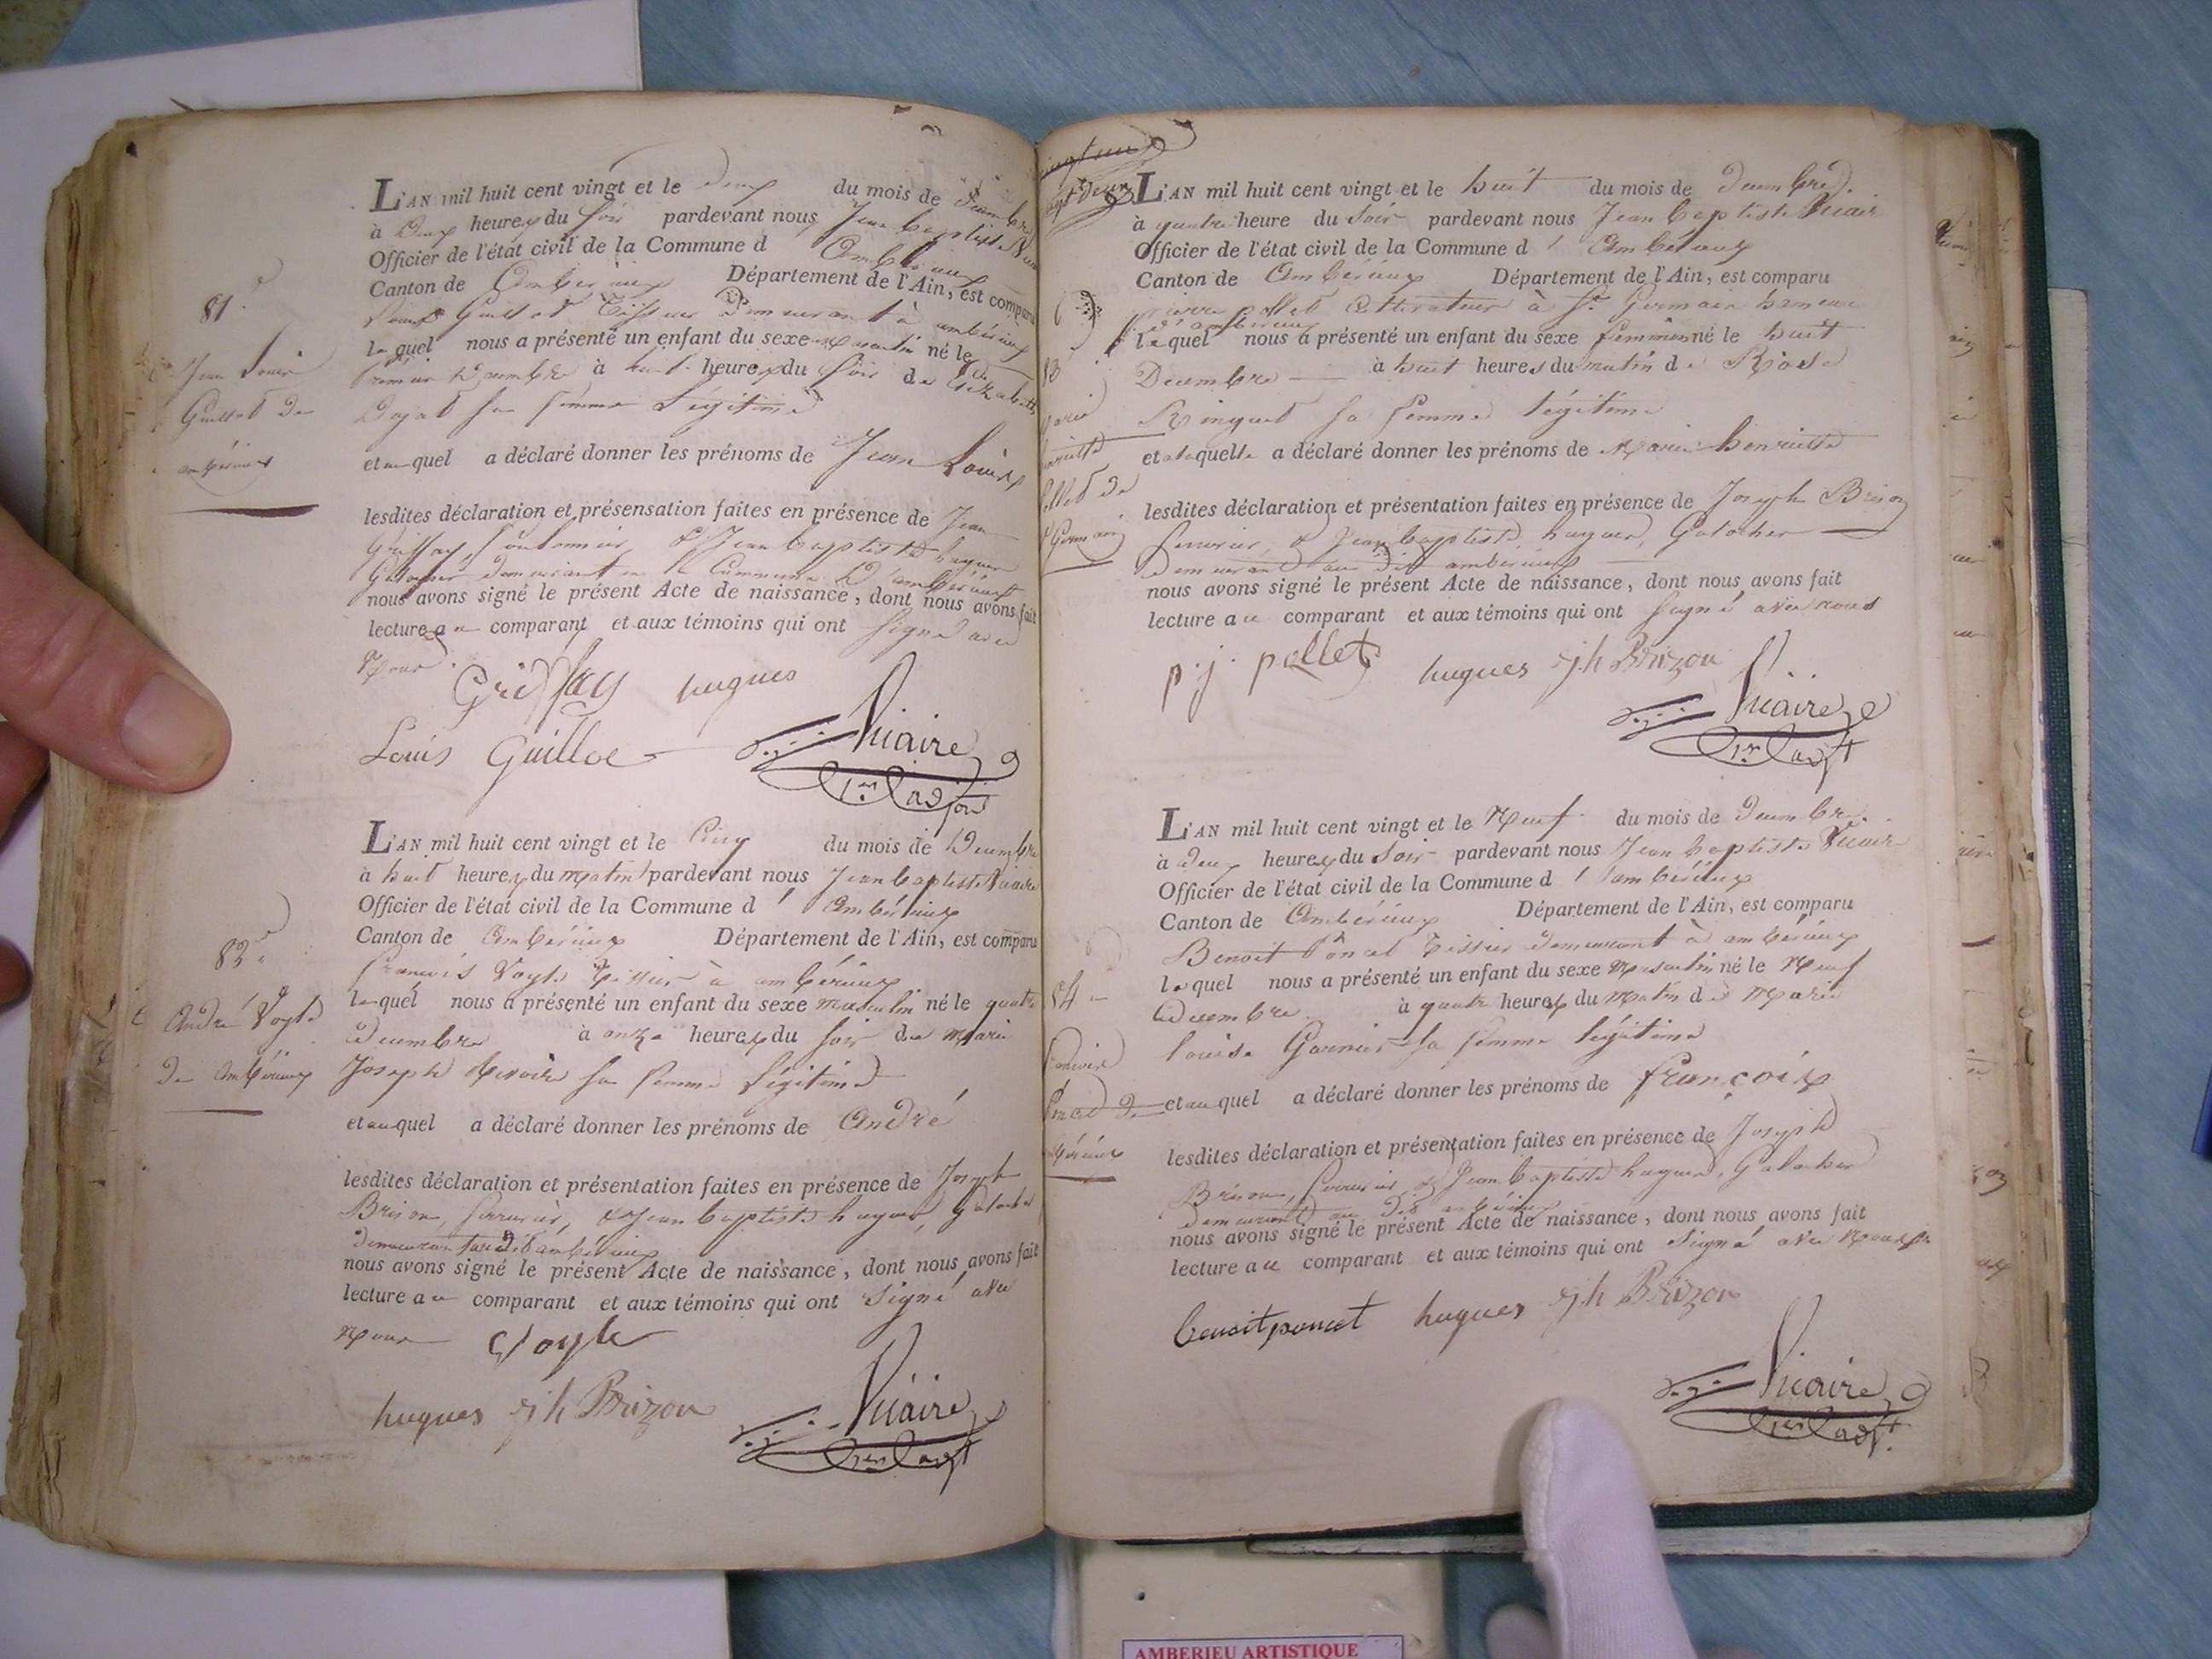 81.e
Jean Louis
Guillot de
ambérieux
L'AN mil huit cent vingt et le deux du mois de Décembre
à deux heures du soir pardevant nous Jean baptiste
Officier de l'état civil de la Commune d' Ambérieux
Canton de Ambérieux Département de l'Ain, est comparu
Louis Guillot Tissier demeurant à ambérieux
lequel nous a présenté un enfant du sexe masculin né le
premier Décembre à huit heures du soir de
Dojat sa femme Légitime
et auquel a déclaré donner les prénoms de Jean Louis
lesdites déclaration et présensation faites en présence de Jean
Griffay, & Jean baptiste hugues
Galocher demeurant en la Commune d'ambérieux
nous avons signé le présent Acte de naissance, dont nous avons fait
lecture au comparant et aux témoins qui ont signé avec
Nous.
Griffay hugues
Louis Guillot
Vicaire
1er adjoint
82.e
André Vogle
De Ambérieux
L'AN mil huit cent vingt et le Cinq du mois de Décembre
à huit heures du matin pardevant nous Jean baptiste Vicaire
Officier de l'état civil de la Commune d' Ambérieux
Canton de Ambérieux Département de l'Ain, est comparu
francois Vogle Tissier à ambérieux
lequel nous a présenté un enfant du sexe masculin né le quatre
décembre à onze heures du soir de Marie
Joseph sa femme légitime
et auquel a déclaré donner les prénoms de André
lesdites déclaration et présentation faites en présence de Joseph
Brison, serrurier, & Jean baptiste hugues, Galocher
demeurant audit ambérieux
nous avons signé le présent Acte de naissance, dont nous avons fait
lecture au comparant et aux témoins qui ont signé avec
Nous Vogle
hugues jh Brizon
Vicaire
1er adjt
83
Marie
henriette
Pellet de
St Germain
L'AN mil huit cent vingt et le huit du mois de décembre
à quatre heure du soir pardevant nous Jean baptiste Vicaire
Officier de l'état civil de la Commune d' Ambérieux
Canton de Ambérieux Département de l'Ain, est comparu
pierre pellet Cultivateur à St Germain hameau
d'ambérieux
lequel nous a présenté un enfant du sexe féminin né le huit
Décembre à huit heures du matin de Rose
Ringuet sa femme légitime
et a laquelle a déclaré donner les prénoms de Marie henriette
lesdites déclaration et présentation faites en présence de Joseph Brison
serrurier, & Jean baptiste hugues, Galocher
demeurant au dit ambérieux
nous avons signé le présent Acte de naissance, dont nous avons fait
lecture au comparant et aux témoins qui ont signé avec nous
p. j. pellet hugues jh Brizon
Vicaire
1er adjt
84
françois
Poncet de
L'AN mil huit cent vingt et le Neuf du mois de décembre
à deux heures du soir pardevant nous Jean baptiste Vicaire
Officier de l'état civil de la Commune d' ambérieux
Canton de Ambérieux Département de l'Ain, est comparu
Benoit Poncet Tissier demeurant à ambérieux
lequel nous a présenté un enfant du sexe masculin né le Neuf
décembre à quatre heures du matin de Marie
louise Garnier sa femme légitime
et auquel a déclaré donner les prénoms de françois
lesdites déclaration et présentation faites en présence de Joseph
Brison, serrurier, & Jean baptiste hugues, Galocher
demeurant au dit ambérieux
nous avons signé le présent Acte de naissance, dont nous avons fait
lecture au comparant et aux témoins qui ont signé avec Nous
benoit poncet hugues jh Brizon
Vicaire
1er adjt.
AMBERIEU ARTISTIQUE